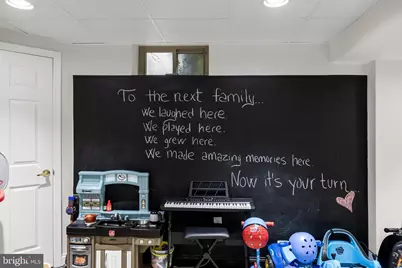 To the next family...
We laughed here.
We played here.
We grew here.
We made amazing memories here.
Now it's your turn...
bright
MLS